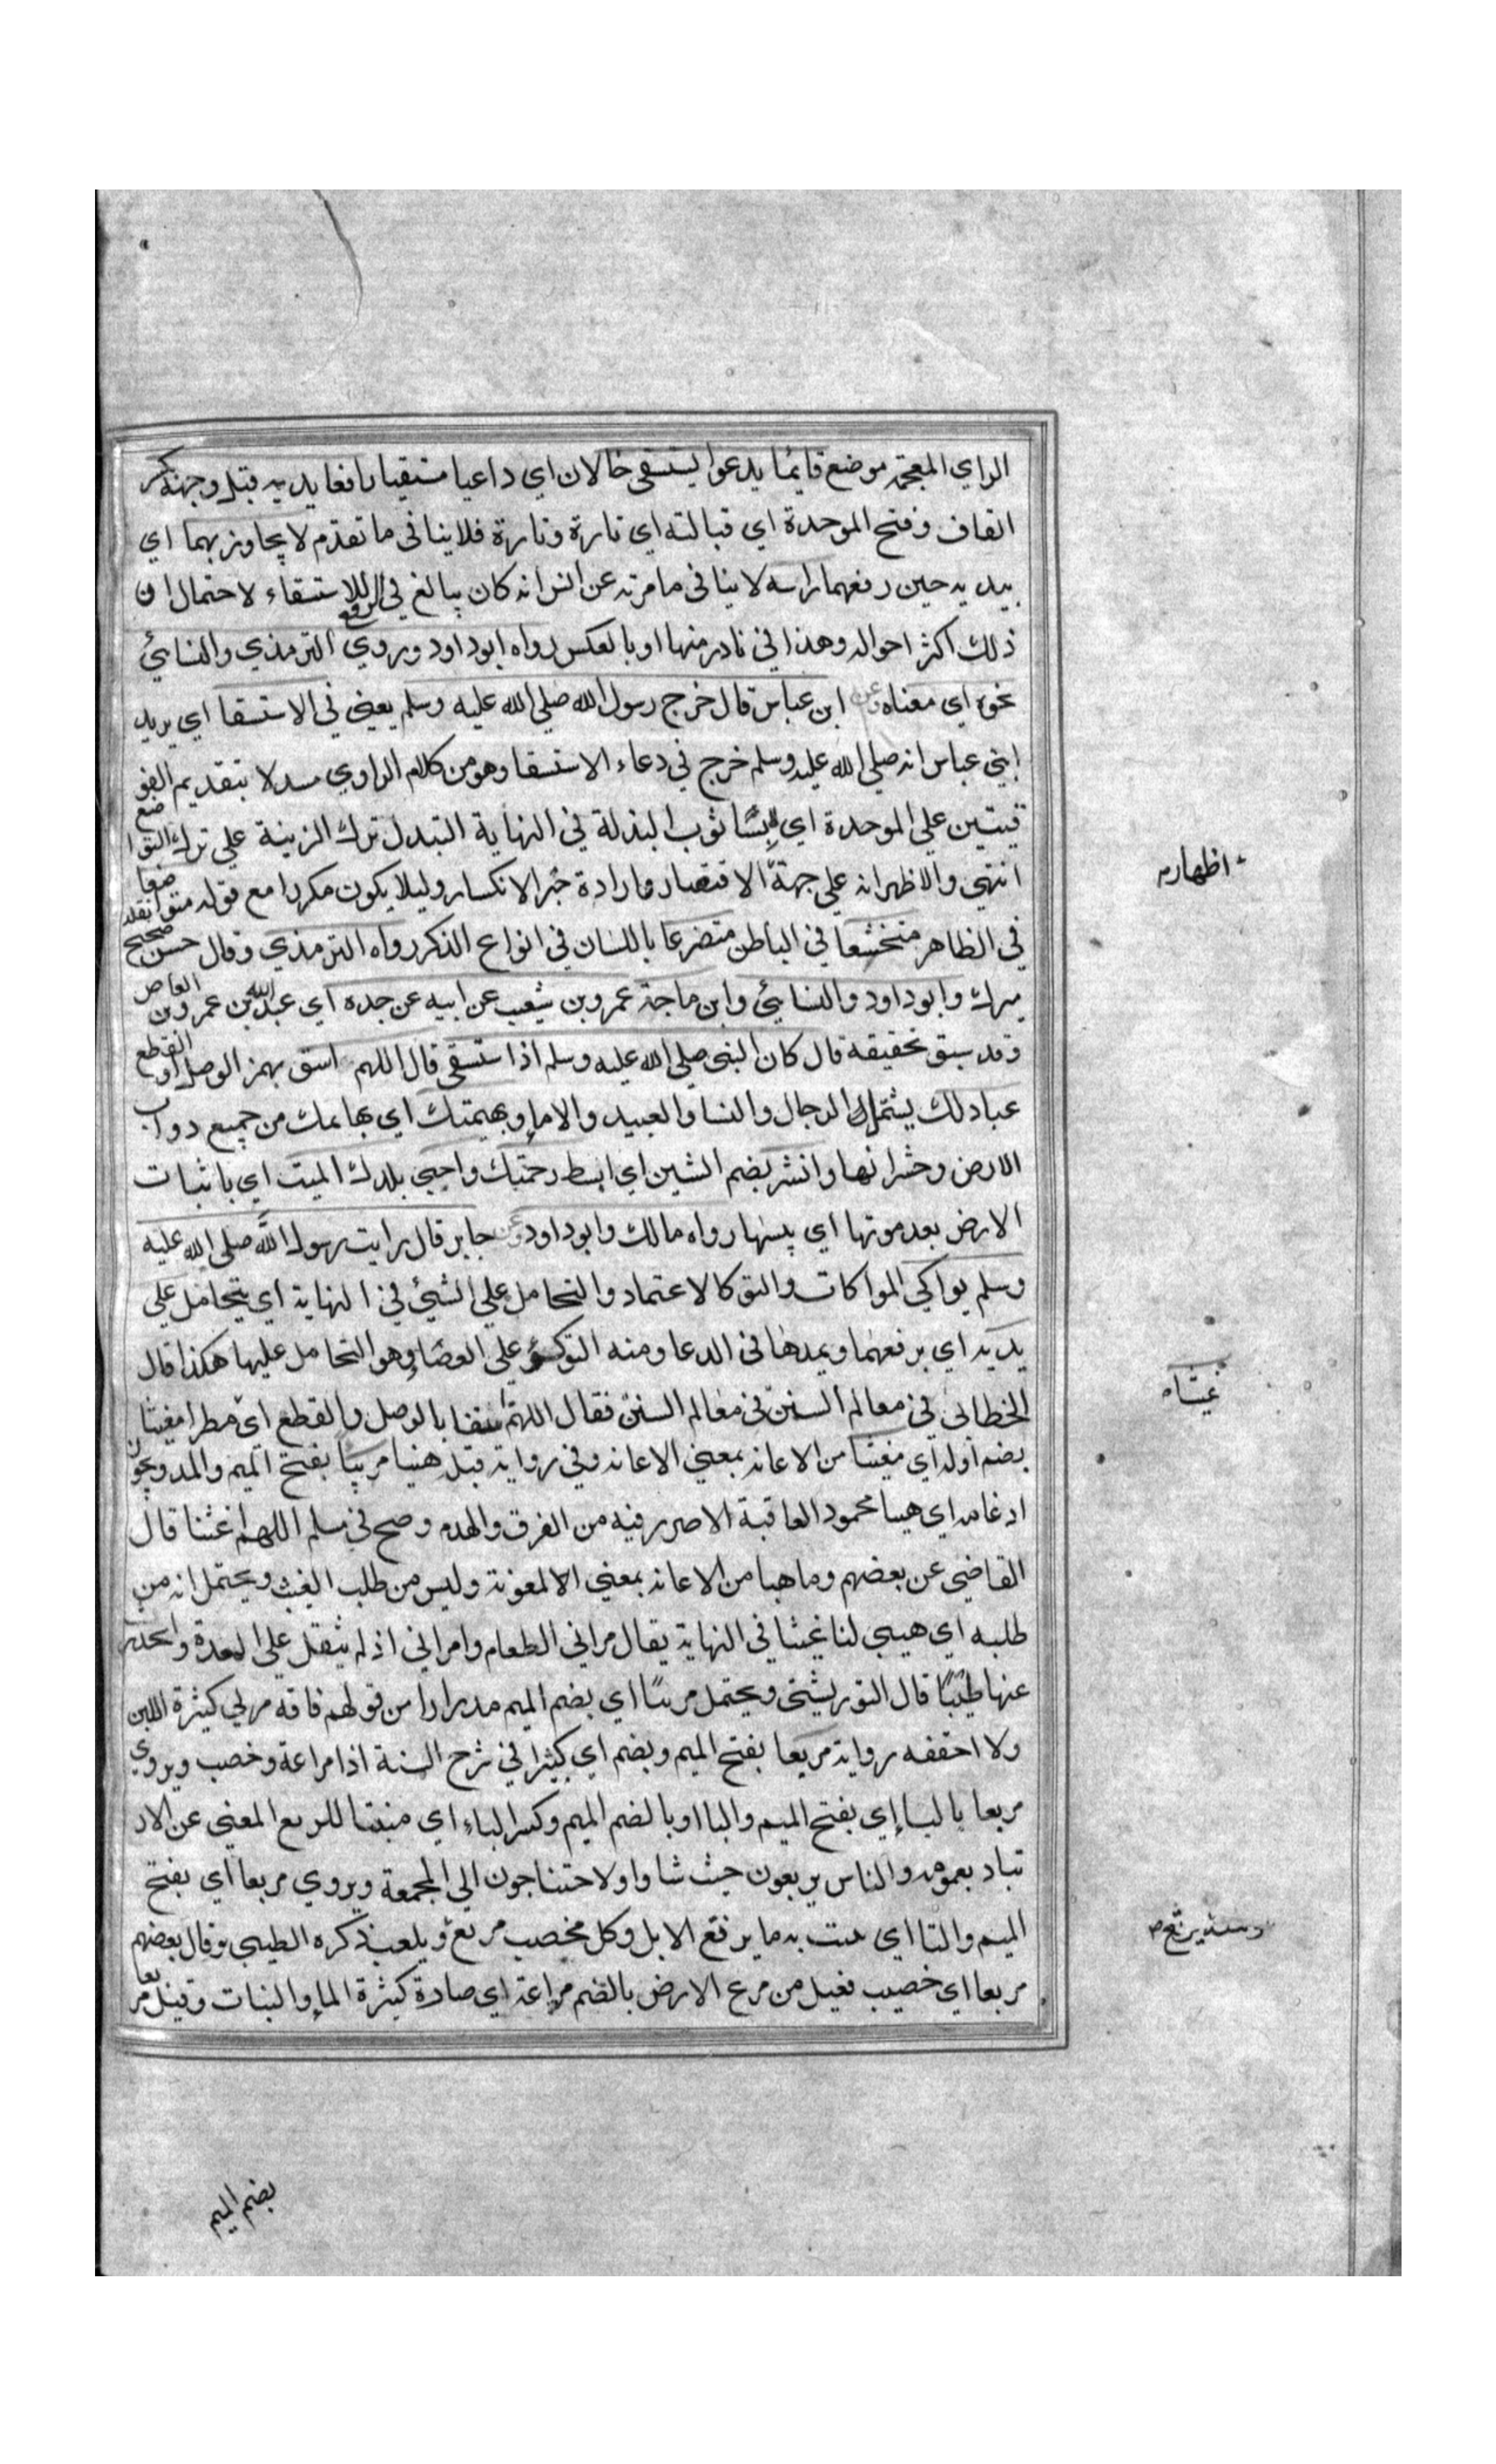 الراي المعجمة موضع قايما يدعوا يستسقى حالان اي داعيا مستسقيا رافعا يديه قبل وجهه بكسر
القاف وفتح الموحدة اي قبالته اي تارة وتارة فلا ينافى ما تقدم لا يجاوز بهما اي
بيديه حين رفعهما راسه لا ينافى ما مر عن انس انه كان يبالغ في الرفع للاستسقاء لاحتمال ان
ذلك اكثر احواله وهذا في نادر منها او بالعكس رواه ابو داود وروي الترمذي والنسائي
نحوه اي معناه وعن ابن عباس قال خرج رسول الله صلي الله عليه وسلم يعني في الاستسقا اي يريد
ابني عباس انه صلي الله عليه وسلم خرج في دعاء الاستسقا وهو من كلام الراوي مبتذلا بتقديم الفو
قيتين علي الموحدة اي لابسا ثوب البذلة في النهاية التبذل ترك الزينة علي ترك التواضع
انتهي والاظهر انه علي جهة الافتقار وارادة جبر الانكسار وليلا يكون مكررا مع قوله متواضعا
في الظاهر متخشعا في الباطن متضرعا باللسان في انواع الذكر رواه الترمذي وقال حسن صحيح نقله
ميرك وابو داود والنسايئ وابن ماجة عمرو بن شعيب عن ابيه عن جده اي عبد الله بن عمرو بن العاص
وقد سبق تحقيقه قال كان النبي صلي الله عليه وسلم اذا ستسقى قال اللهم اسق بهمز الوصل او القطع
عبادلك يشتمل الرجال والنسا والعبيد والاما وبهيمتك اي بهايمك من جميع دواب
الارض وحشراتها وانشر بضم الشين اي ابسط رحمتك واحيي بلدك الميت اي باثبات
الارض بعد موتها اي يبسها رواه مالك وابو داود وعن جابر قال رايت رسول الله صلي الله عليه
وسلم يواكي المواكات والتوكا الاعتماد والتحامل علي الشيئ في النهاية اي يتحامل علي
يديه اي يرفعهما ويمدها في الدعا ومنه التوكؤ علي العصا وهو التحامل عليها هكذا قال
الخطابي في معالم السنن في معالم السنن فقال اللهم اسقنا بالوصل والقطع اي مطرا مغيثا
بضم اوله اي مغيثا من الاعانه بمعني الاعانه وفي رواية قبل هنيا مريئا بفتح الميم والمد ويجوز
ادغامه اي هنيا محمود العاقبة لاضرر فيه من الغرق والهدم وصح في مسلم اللهم اغثنا قال
القاضي عن بعضهم وما هنا من الاعانه بمعني الالمعونة وليس من طلب الغيث ويحتمل انه من
طلبه اي هيي لنا غيثا في النهاية يقال مراني الطعام وامراني اذ لم يثقل علي المعدة وانحدر
عنها طيبا قال التوربشتي ويحتمل مريئا اي بضم الميم مدرارا من قولهم ناقه مري كثيرة اللبن
ولا احققه رواية مريعا بفتح الميم وبضم اي كثيرا في شرح السنة اذا مراعة وخصب ويروي
مربعا بالبا اي بفتح الميم والبا او بالضم الميم وكسر الباء اي منبتا للربيع المغني عن الار
تياد بعمومه والناس يربعون حيث شاوا ولا حتناجون الي المجمعة ويروي مربعا اي بفتح
الميم والتا اي ينبت به ما يرتع الابل وكل مخصب مربع ويلعب ذكره الطيبي وقال بعضهم
مريعا اي خصيب فعيل من مرع الارض بالضم مراعة اي صارة كثيرة الما والنبات وقيل مريعا
اظهاره
غيثا
بضم الميم